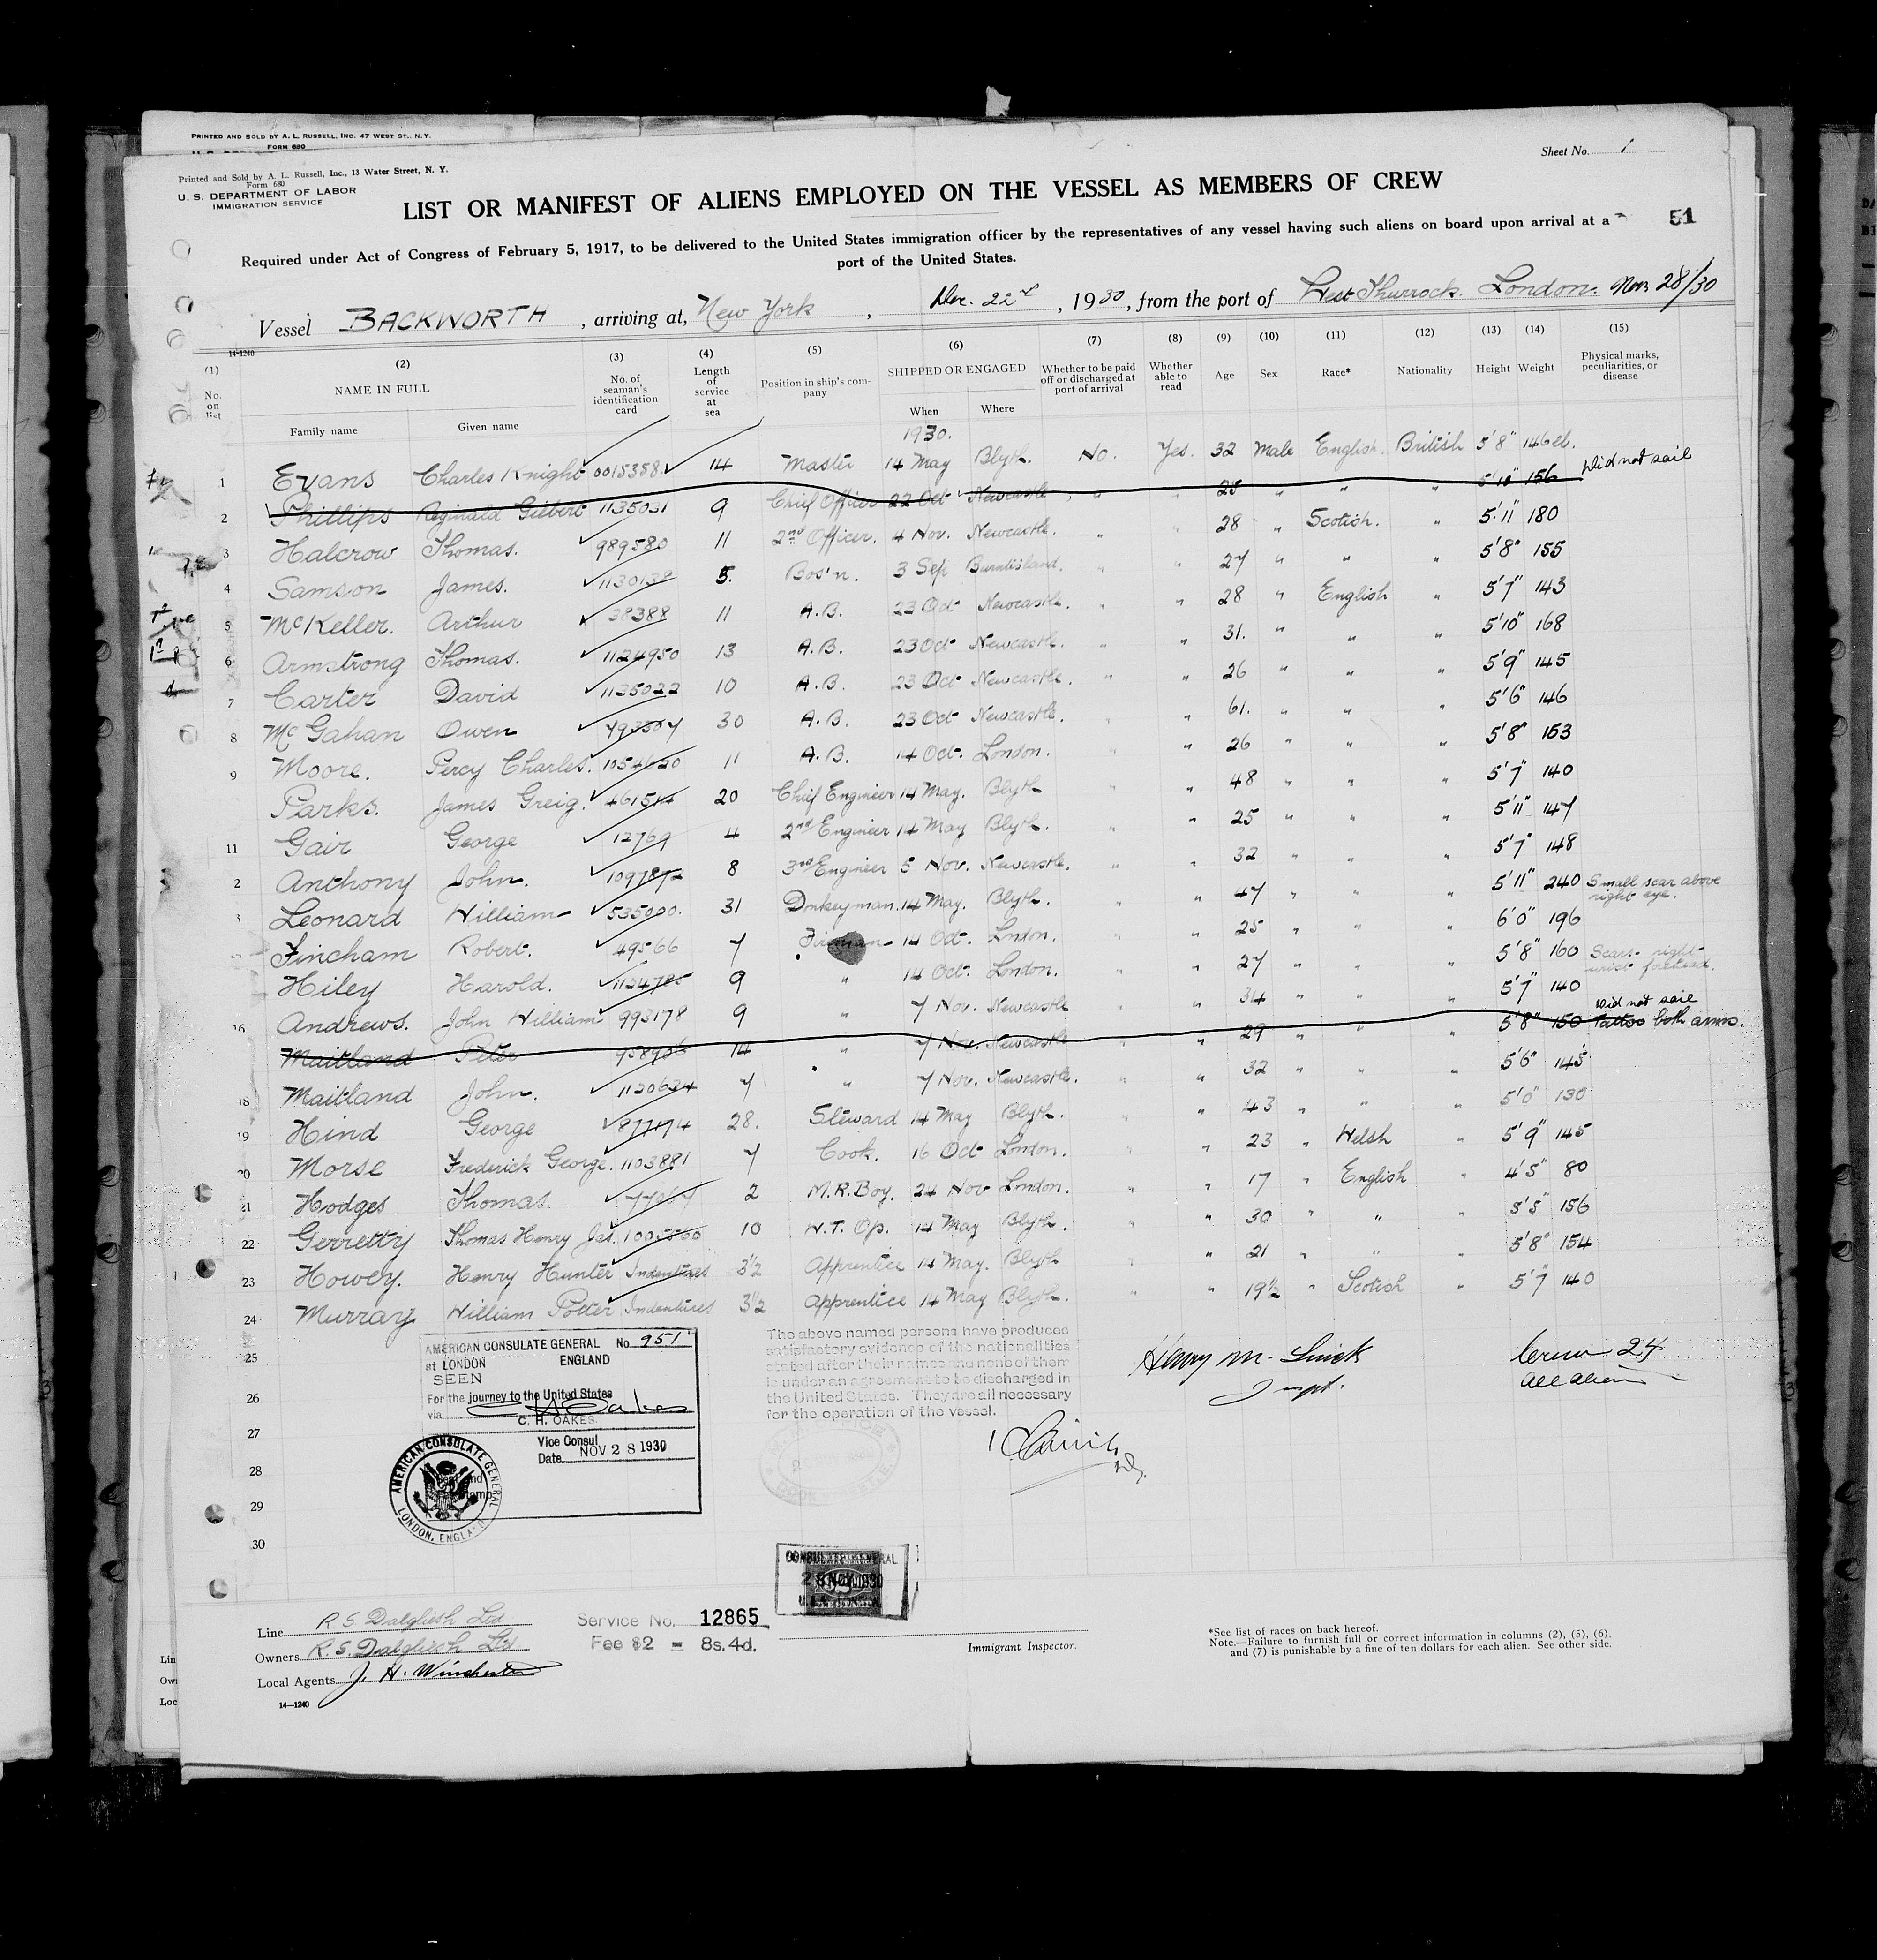 PRINTED AND SOLD BY A. L. RUSSELL, INC. 47 WEST ST., N. Y.
FORM 680
Sheet No. 1
Printed and Sold by A. L. Russell, Inc., 13 Water Street, N. Y.
Form 680
U. S. DEPARTMENT OF LABOR
IMMIGRATION SERVICE
LIST OR MANIFEST OF ALIENS EMPLOYED ON THE VESSEL AS MEMBERS OF CREW
51
Required under Act of Congress of February 5, 1917, to be delivered to the United States immigration officer by the representatives of any vessel having such aliens on board upon arrival at a
port of the United States.
Vessel BACKWORTH, arriving at, New York, Dec. 22nd, 1930, from the port of West Thurrock. London. Nov 28/30
14-1240
(1) (2) (3) (4) (5) (6) (7) (8) (9) (10) (11) (12) (13) (14) (15)
No. on list NAME IN FULL No. of seaman's identification card Length of service at sea Position in ship's company SHIPPED OR ENGAGED Whether to be paid off or discharged at port of arrival Whether able to read Age Sex Race* Nationality Height Weight Physical marks, peculiarities, or disease
Family name Given name When Where
1930.
1 Evans Charles Knight 0015358 14 Master 14 May Blyth. No. Yes. 32 Male English. British 5'8" 146
2 Phillips Reginald Gilbert 1135031 9 Chief Officer 22 Oct Newcastle " " 28 " " " 5'10" 156 Did not sail
3 Halcrow Thomas. 989580 11 2nd Officer. 4 Nov. Newcastle. " " 28 " Scotish. " 5'11 180
4 Samson James. 1130138 5. Bos'n. 3 Sep Burntisland. " " 27 " " " 5'8" 155
5 McKeller. Arthur 38388 11 A.B. 23 Oct Newcastle. " " 28 " English " 5'7" 143
6 Armstrong Thomas. 1124950 13 A.B. 23 Oct Newcastle. " " 31. " " " 5'10" 168
7 Carter David 1135022 10 A.B. 23 Oct Newcastle. " " 26 " " " 5'9" 145
8 McGahan Owen 30 A.B. 23 Oct Newcastle. " " 61. " " " 5'6" 146
9 Moore. Percy Charles. 11 A.B. 14 Oct. London. " " 26 " " " 5'8" 153
Parks. James Greig. 461514 20 Chief Engineer 14 May. Blyth " " 48 " " " 5'7" 140
11 Gair George 12769 4 2nd Engineer 14 May Blyth. " " 25 " " " 5'11" 147
2 Anthony John. 8 3rd Engineer 5 Nov. Newcastle. " " 32 " " " 5'7" 148
3 Leonard William 535000. 31 Donkeyman. 14 May. Blyth. " " 47 " " " 5'11" 240 Small scar above right eye.
Fincham Robert. 49566 7 Fireman 14 Oct. London. " " 25 " " " 6'0" 196
Hiley Harold. 9 " 14 Oct. London. " " 27 " " " 5'8" 160 Scars right wrist forehead.
16 Andrews. John William 993178 9 " 7 Nov. Newcastle " " 34 " " " 5'7 140
Maitland Peter 14 " 7 Nov. Newcastle " " 29 " " " 5'8" 150 Did not sail Tattoo both arms.
18 Maitland John. 1120634 7 " 7 Nov. Newcastle. " " 32 " " " 5'6" 145
19 Hind George 28. Steward 14 May Blyth. " " 43 " " " 5'0" 130
20 Morse Frederick George. 1103881 7 Cook. 16 Oct London. " " 23 " Welsh " 5'9" 145
21 Hodges Thomas. 2 M.R. Boy. 24 Nov London. " " 17 " English " 4'5" 80
22 Gerretty Thomas Henry Jas. 10 W.T. Op. 14 May Blyth. " " 30 " " " 5'5" 156
23 Howey. Henry Hunter Indentures 3½ Apprentice 14 May. Blyth " " 21 " " " 5'8" 154
24 Murray William Potter Indentures 3½ Apprentice 14 May Blyth. " " 19½ " Scotish " 5'7 140
25
26
27
28
29
30
AMERICAN CONSULATE GENERAL No 951
at LONDON ENGLAND
SEEN
For the journey to the United States
via
C. H. OAKES.
Vice Consul
Date NOV 28 1930
AMERICAN CONSULATE GENERAL
LONDON, ENGLAND
The above named persons have produced
satisfactory evidence of the nationalities
stated after their names and none of them
is under an agreement to be discharged in
the United States. They are all necessary
for the operation of the vessel.
Henry M.
Inspt.
Crew 24
all aliens
CONSULATE GENERAL
28 NOV. 1930
Line R. S. Dalgliesh Ltd
Owners R. S. Dalgliesh Ltd
Local Agents J. H. Winchester
14—1240
Service No. 12865
Fee $2 = 8s. 4d.
Immigrant Inspector.
*See list of races on back hereof.
Note.—Failure to furnish full or correct information in columns (2), (5), (6),
and (7) is punishable by a fine of ten dollars for each alien. See other side.